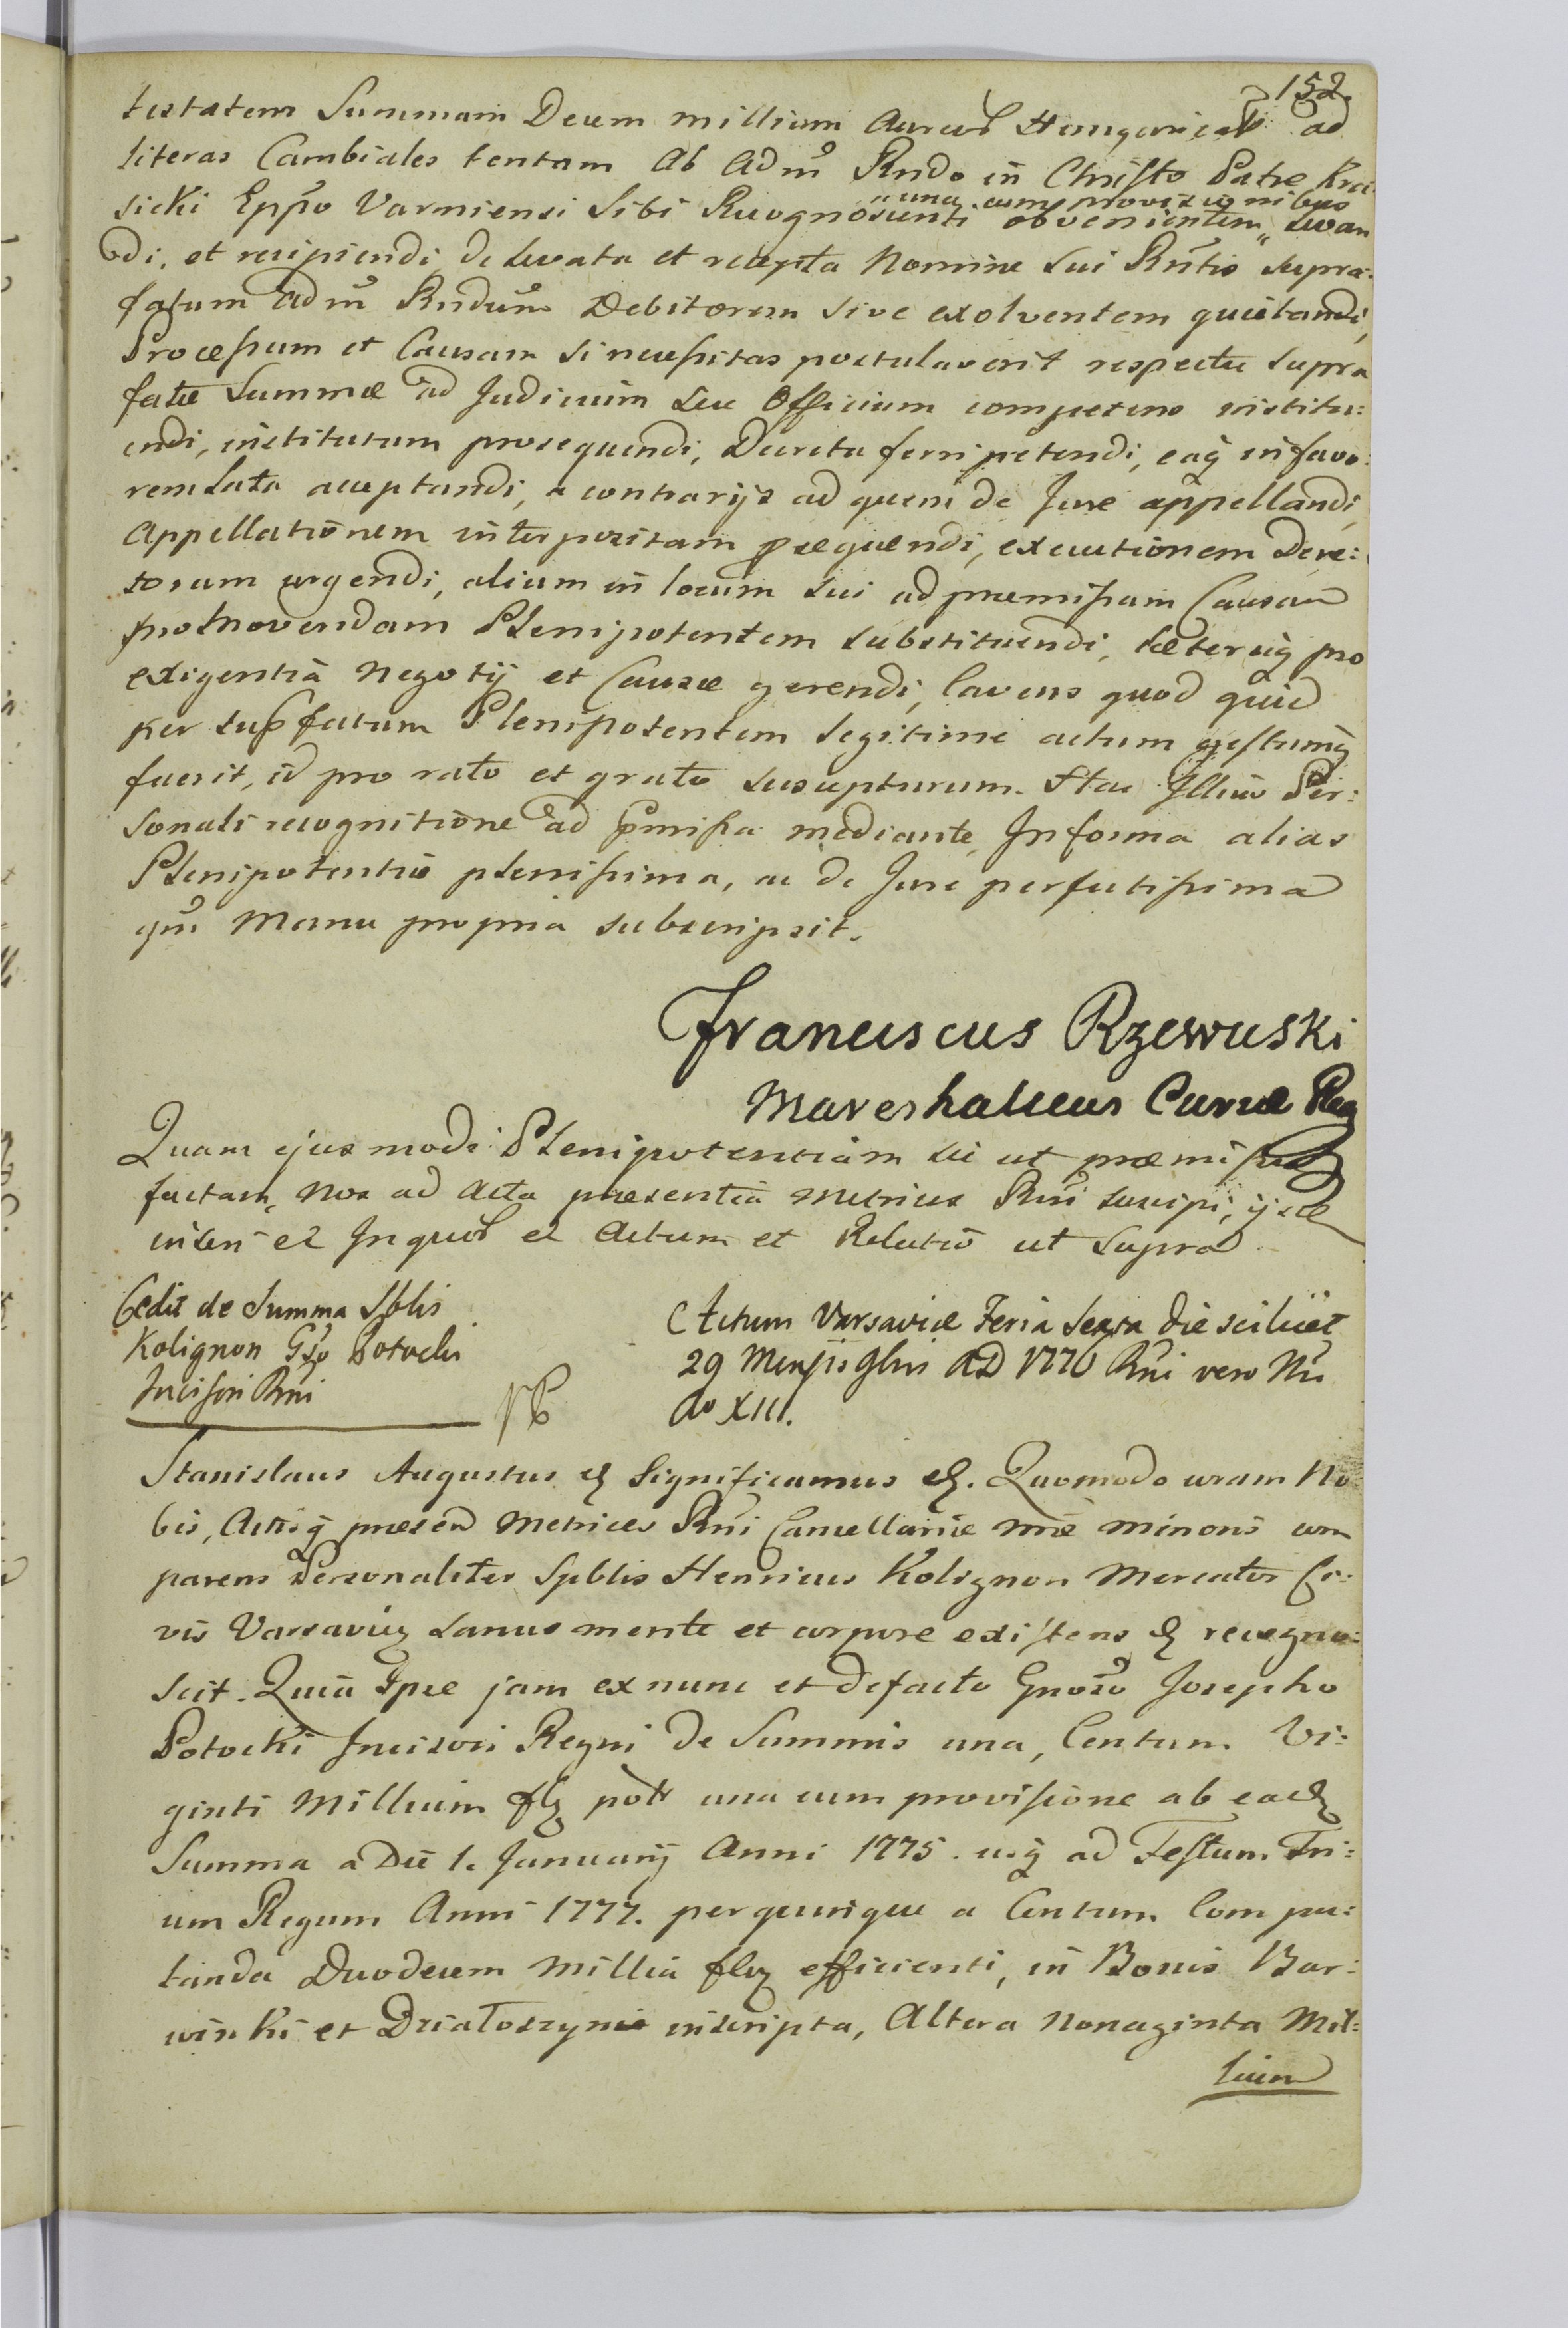 152.
testatem Summam Decem millium Aureor Hungarical ad
literas Cambiales tentam Ab Adm Rndo in Christo Patre Kra-
sicki Eppo Varmiensi Sibi Recognoscenti obvenientem „ Levan
„una cum provisionibus
di, et recipiendi de levata et recepta Nomine Sui Rntis supra-
fatum Adm Rndum Debitorem sive exolventem quietandi,
Processum et Causam si necessitas postulaverit respectu supra
fatæ Summæ ad Judicium seu Officium competens institu:
endi, institutum prosequendi, Decreta ferri petendi, eaq in favo:
rem lata acceptandi, a contrarijs ad quem de Jure appellandi,
Appellationem interpositam psequendi, executionem Decre:
torum urgendi, alium in locum sui ad præmissam Causam
promovendam Plenipotentem substituendi, cæteraq pro
exigentia Negotij et Causæ gerendi, Cavens quod quid
per supfatum Plenipotentem legitime actum gestumq
fuerit, id pro rato et grato suscepturum. Hac Illius Per:
sonali recognitione ad pmissa mediante, In forma alias
Plenipotentiæ plenissima, ac de Jure perfectissima
qui Manu propria subscripsit.
Franciscus Rzewuski
Mareshalcus Curiæ Reg
Quam ejusmodi Plenipotentiam sic ut præmissum
factam, Nos ad Acta præsentia Metrices Rni suscipi, ijsde
inseri et Inquol et Actum et Relatio ut supra
Cedit de Summa Sblis
Kolignon Gso Potocki
Incisori Rni
Actum Varsaviæ Feria Sexta die scilicet
29 Mensis 9bris AD 1776 Rni vero Nri
Ao XIII.
Stanislaus Augustus etc Significamus etc. Quomodo coram No
bis, Actisq præsen Metrices Rni Cancellariæ Nræ Minoris com
parens Personaliter Spblis Henricus Kolignon Mercator Ci:
vis Varsavieñ sanus mente et corpore existens etc recogno:
scit. Quia Ipse jam ex nunc et de facto Gnoso Josepho
Potocki Incisori Regni de Summis una, Centum Vi:
ginti Millium flg polr una cum provisione ab eade
Summa a Die 1. Januarij Anni 1775. usq ad Festum Tri:
um Regum Anni 1777. per quinque a Centum Compu:
tanda Duodecem Millia flg efficienti, in Bonis Bar:
winki et Działoszynie inscripta, Altera Nonaginta Mil:
lium